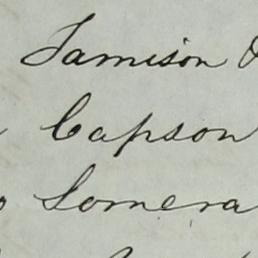 Jamison
Capson
Somera